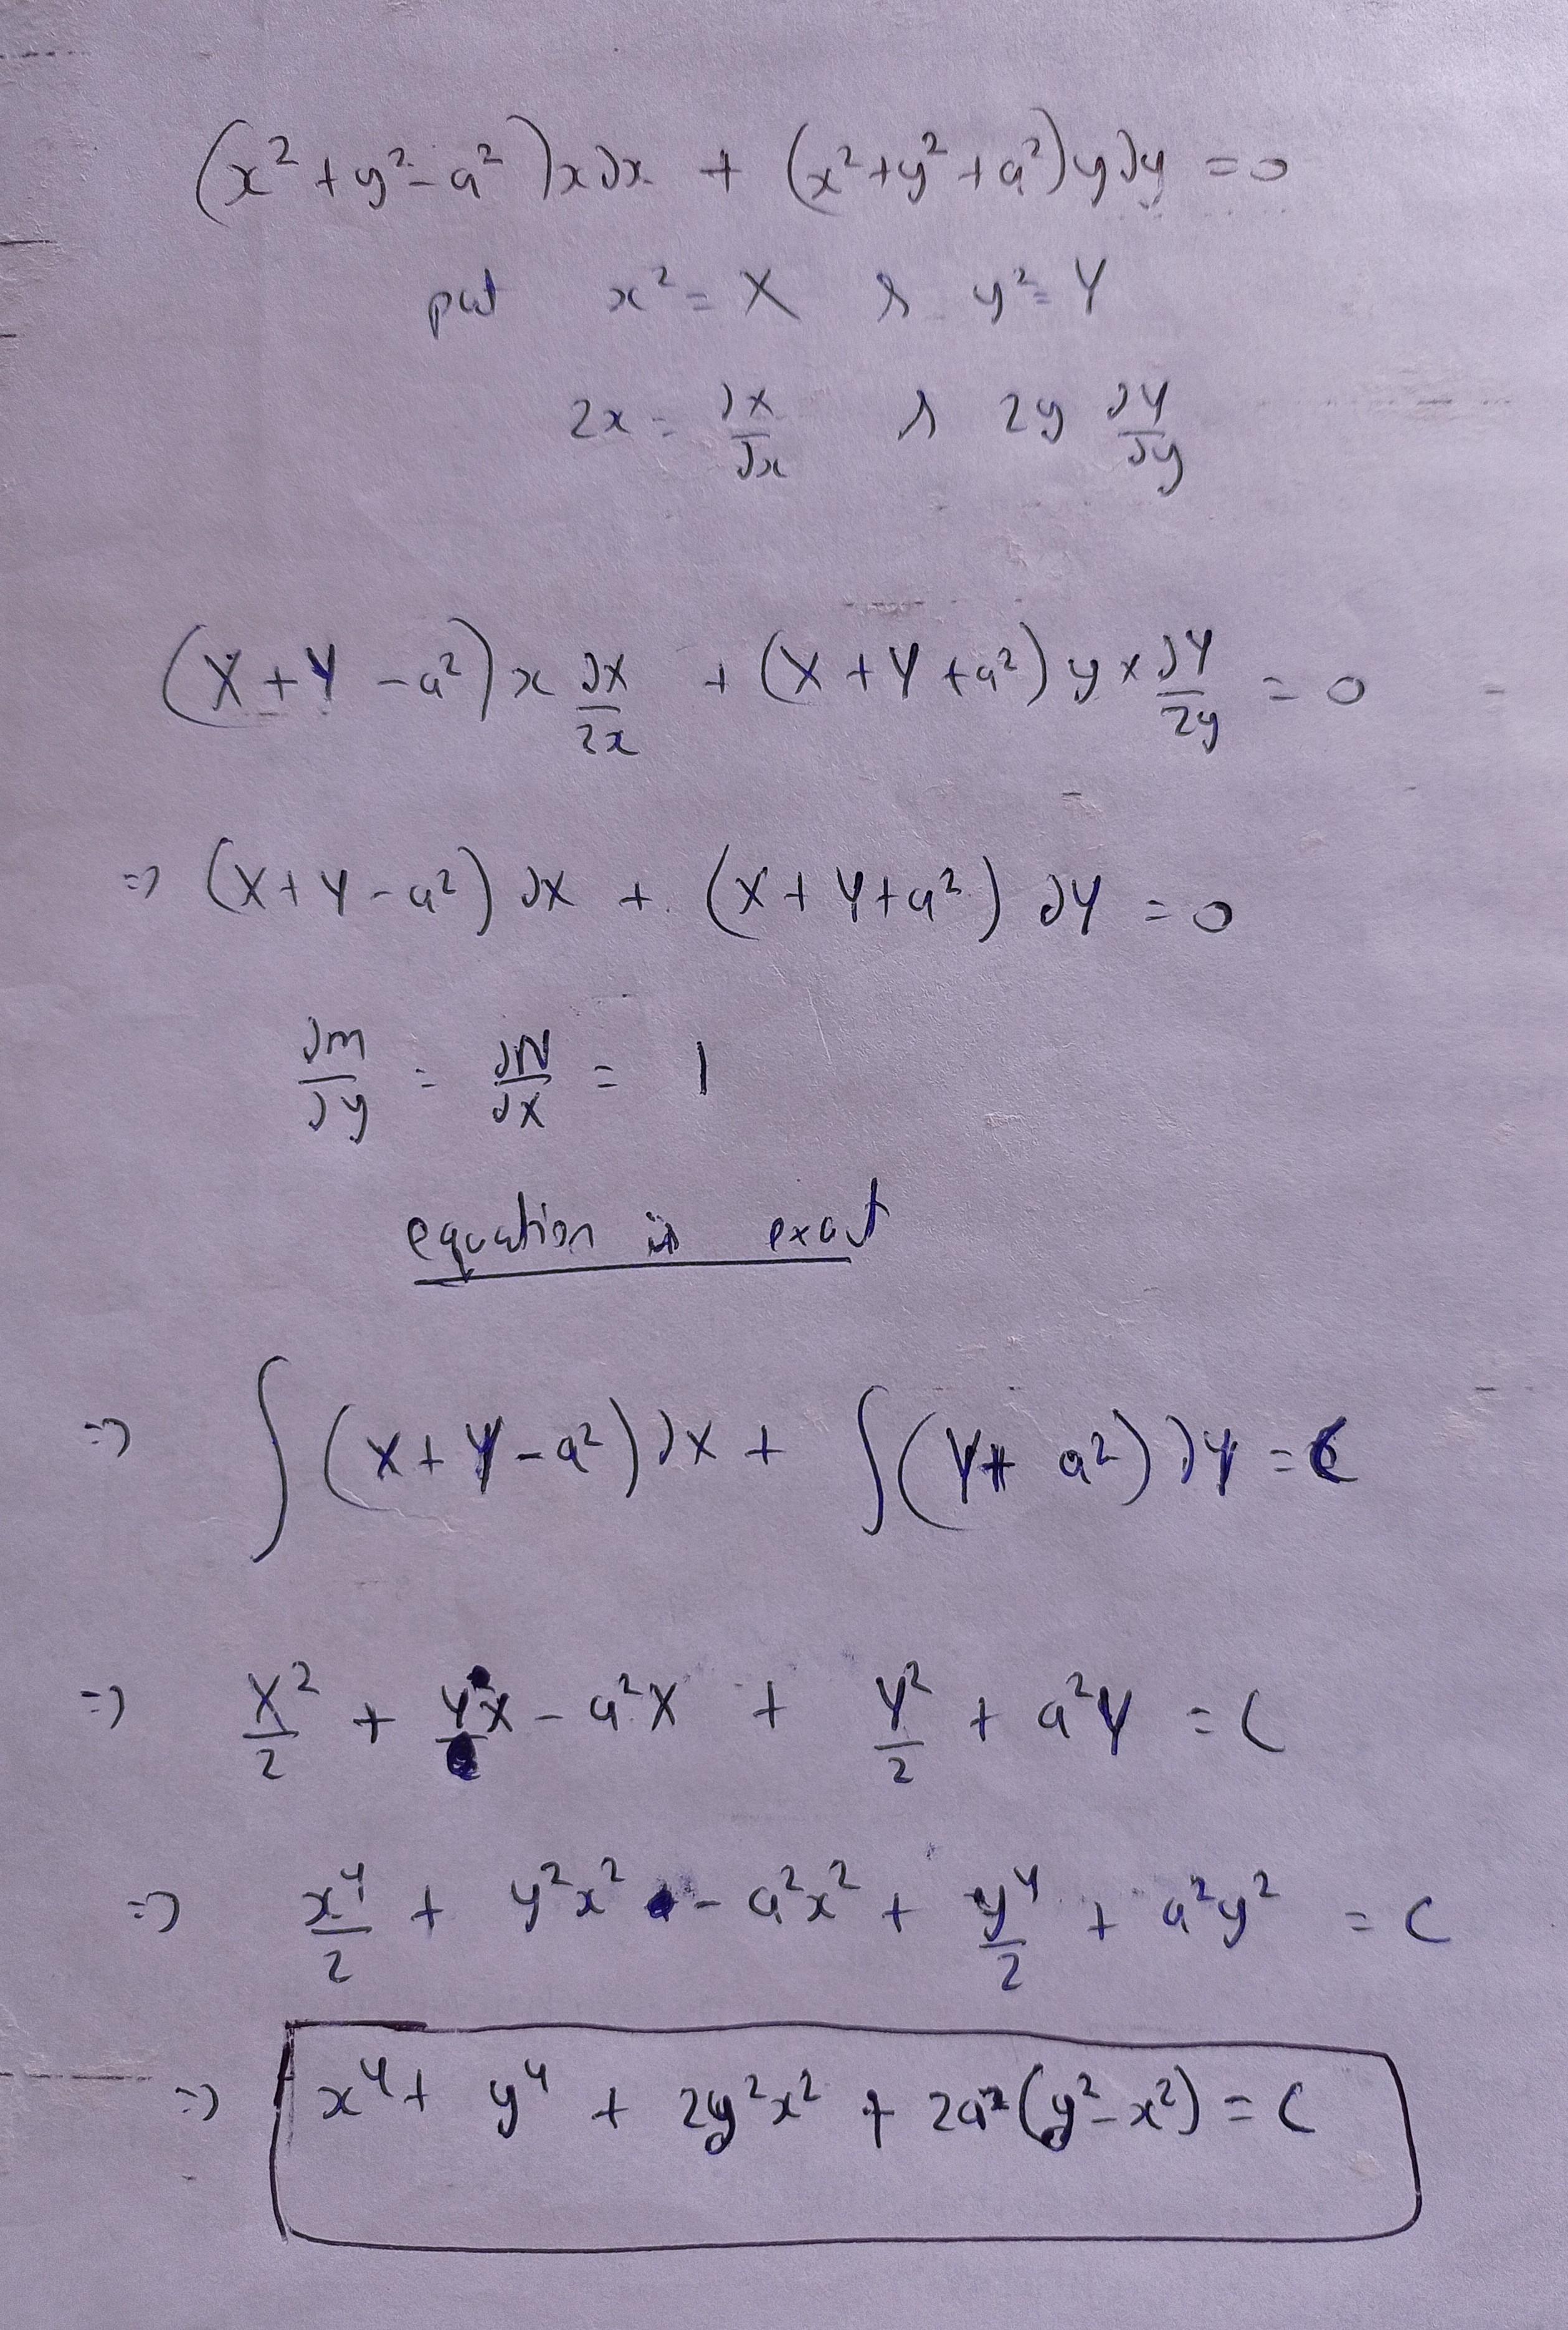 (x² + y² - a²) x dx + (x² + y² + a²) y dy = 0
put x² = X & y² = Y
2x = dX/dx & 2y dY/dy
(X + Y - a²) x dX/2x + (X + Y + a²) y × dY/2y = 0
=> (X + Y - a²) dX + (X + Y + a²) dY = 0
∂m/∂y = ∂N/∂X = 1
equation is exact
=> ∫(X + Y - a²) dX + ∫(Y + a²) dY = C
=> X²/2 + YX - a²X + Y²/2 + a²Y = C
=> x⁴/2 + y²x² - a²x² + y⁴/2 + a²y² = C
=> x⁴ + y⁴ + 2y²x² + 2a²(y² - x²) = C